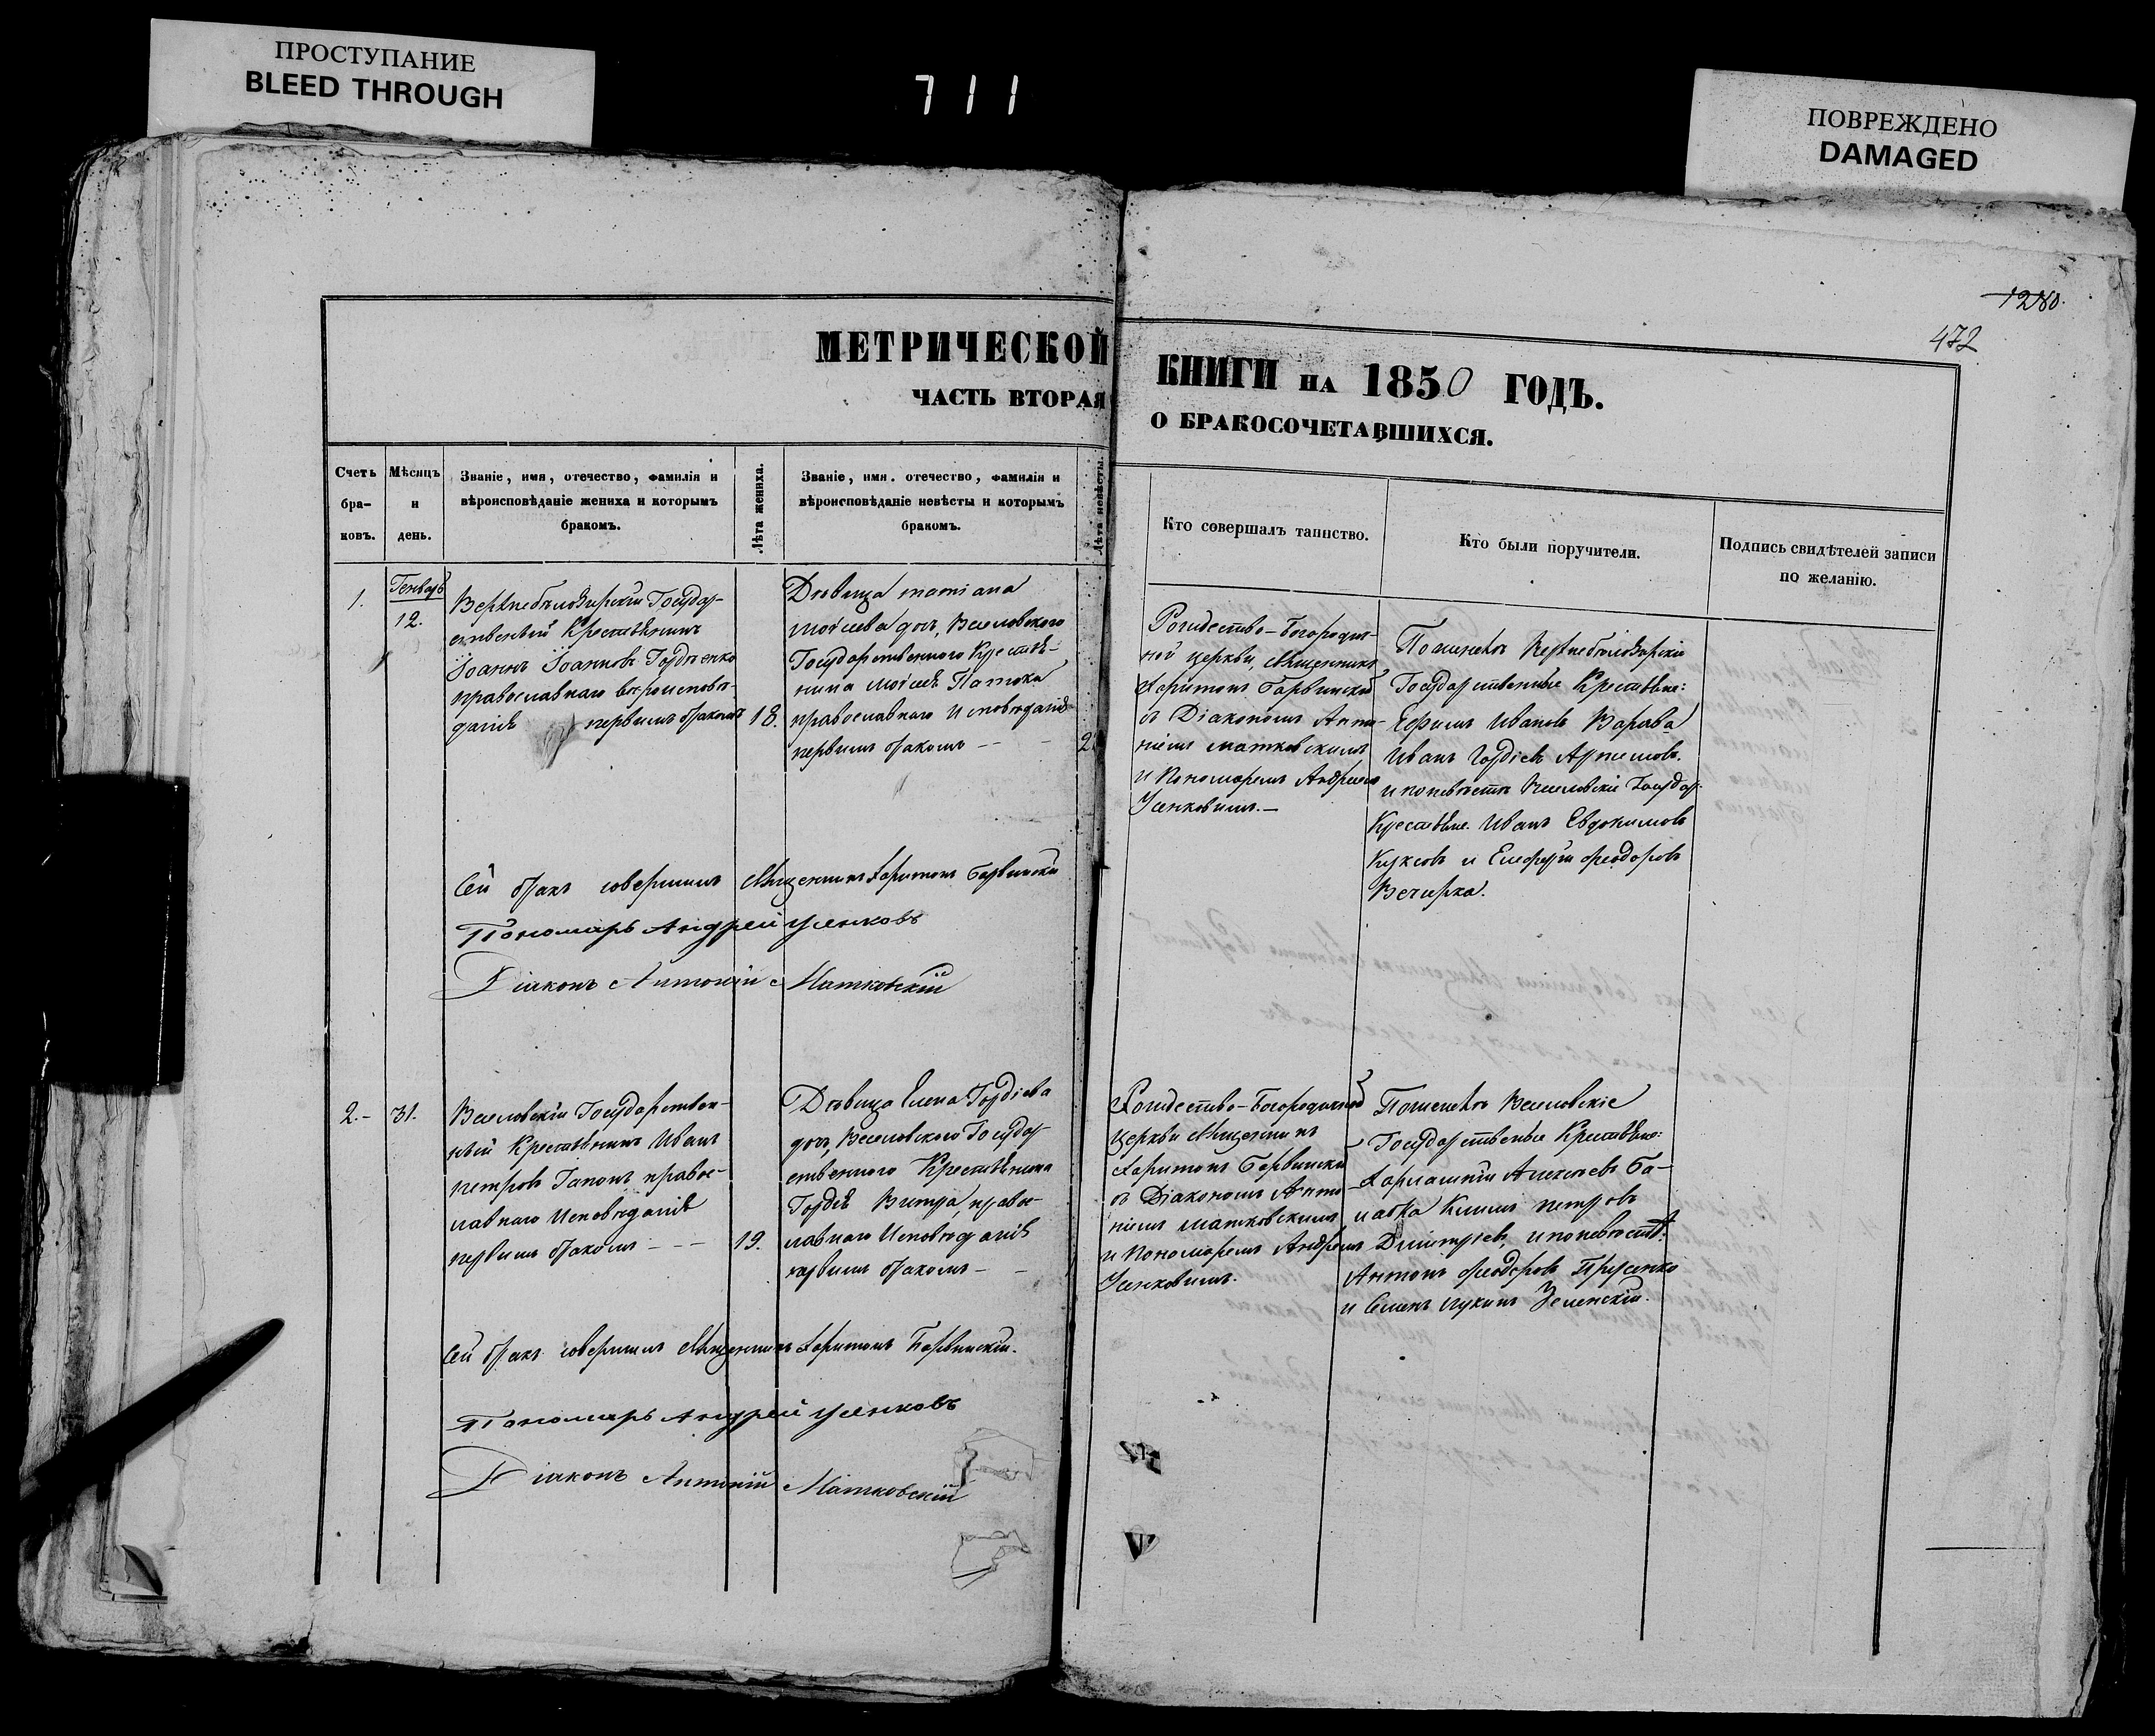 ПРОСТУПАНИЕ
BLEED THROUGH
711
ПОВРЕЖДЕНО
DAMAGED
1280.
472
МЕТРИЧЕСКОЙ КНИГИ НА 1850 ГОДЪ.
ЧАСТЬ ВТОРАЯ О БРАКОСОЧЕТАВШИХСЯ.
Счетъ бра-ковъ.
Мѣсяцъ и день.
Званіе, имя, отечество, фамилія и
вѣроисповѣданіе жениха и которымъ
бракомъ.
Лѣта жениха.
Званіе, имя, отечество, фамилія и
вѣроисповѣданіе невѣсты и которымъ
бракомъ.
Лѣта невѣсты.
Кто совершалъ таинство.
Кто были поручители.
Подпись свидѣтелей записи
по желанію.
1.
Генварь
12.
Государ-
ственный Крестьянинъ
Іоаннъ Іоанновъ Гордѣенко
православнаго вѣроисповѣ-
данія первымъ бракомъ
18.
Дѣвица Татіана
Моѵсеева дочь, Веселовского
Государственного Крестья-
нина Моѵсея Патока
православнаго Исповѣданія
первымъ бракомъ
Рождество-Богородич-
ной церкви, Священникъ
Харитонъ Барвинскій
съ Діакономъ Анто-
ніемъ Матковскимъ
и Пономаремъ Андреемъ
Усенковимъ.
По женихѣ
Государственные Крестьяне:
Ефимъ Ивановъ Варава
Иванъ Гордіевъ Артемовъ.
и по невѣстѣ Веселовскіе Государ:
Крестьяне. Иванъ Евдокимовъ
и Феодоровъ
Вечирка.
Сей бракъ совершилъ Священникъ Харитонъ Барвинскій
Пономарь Андрей Усенковъ
Діаконъ Антоній Матковскій
2.-
31.
Веселовскій Государствен-
ный Крестьянинъ Иванъ
Петровъ Гапонъ правос-
лавнаго Исповѣданія
первымъ бракомъ - - -
19.
Дѣвица Елена Гордіева
дочь, Веселовского Государ-
ственного Крестьянина
Гордѣя Витра, право-
лавнаго Исповѣданія
первымъ бракомъ -
Рождество-Богородичной
церкви Священникъ
Харитонъ Барвинскій
съ Діакономъ Анто-
ніемъ Матковскимъ
и Пономаремъ Андреемъ
Усенковимъ.
По женихѣ Веселовскіе
Государственные Крестьяне:
Харлампій Алексѣевъ
Климъ Петровъ
Димитріевъ, и по невѣстѣ:
Антонъ Феодоровъ Прусенко
и Семенъ Лукинъ Зеленскій.
Сей бракъ совершилъ Священникъ Харитонъ Барвинскій.
Пономарь Андрей Усенковъ
Діаконъ Антоній Матковскій